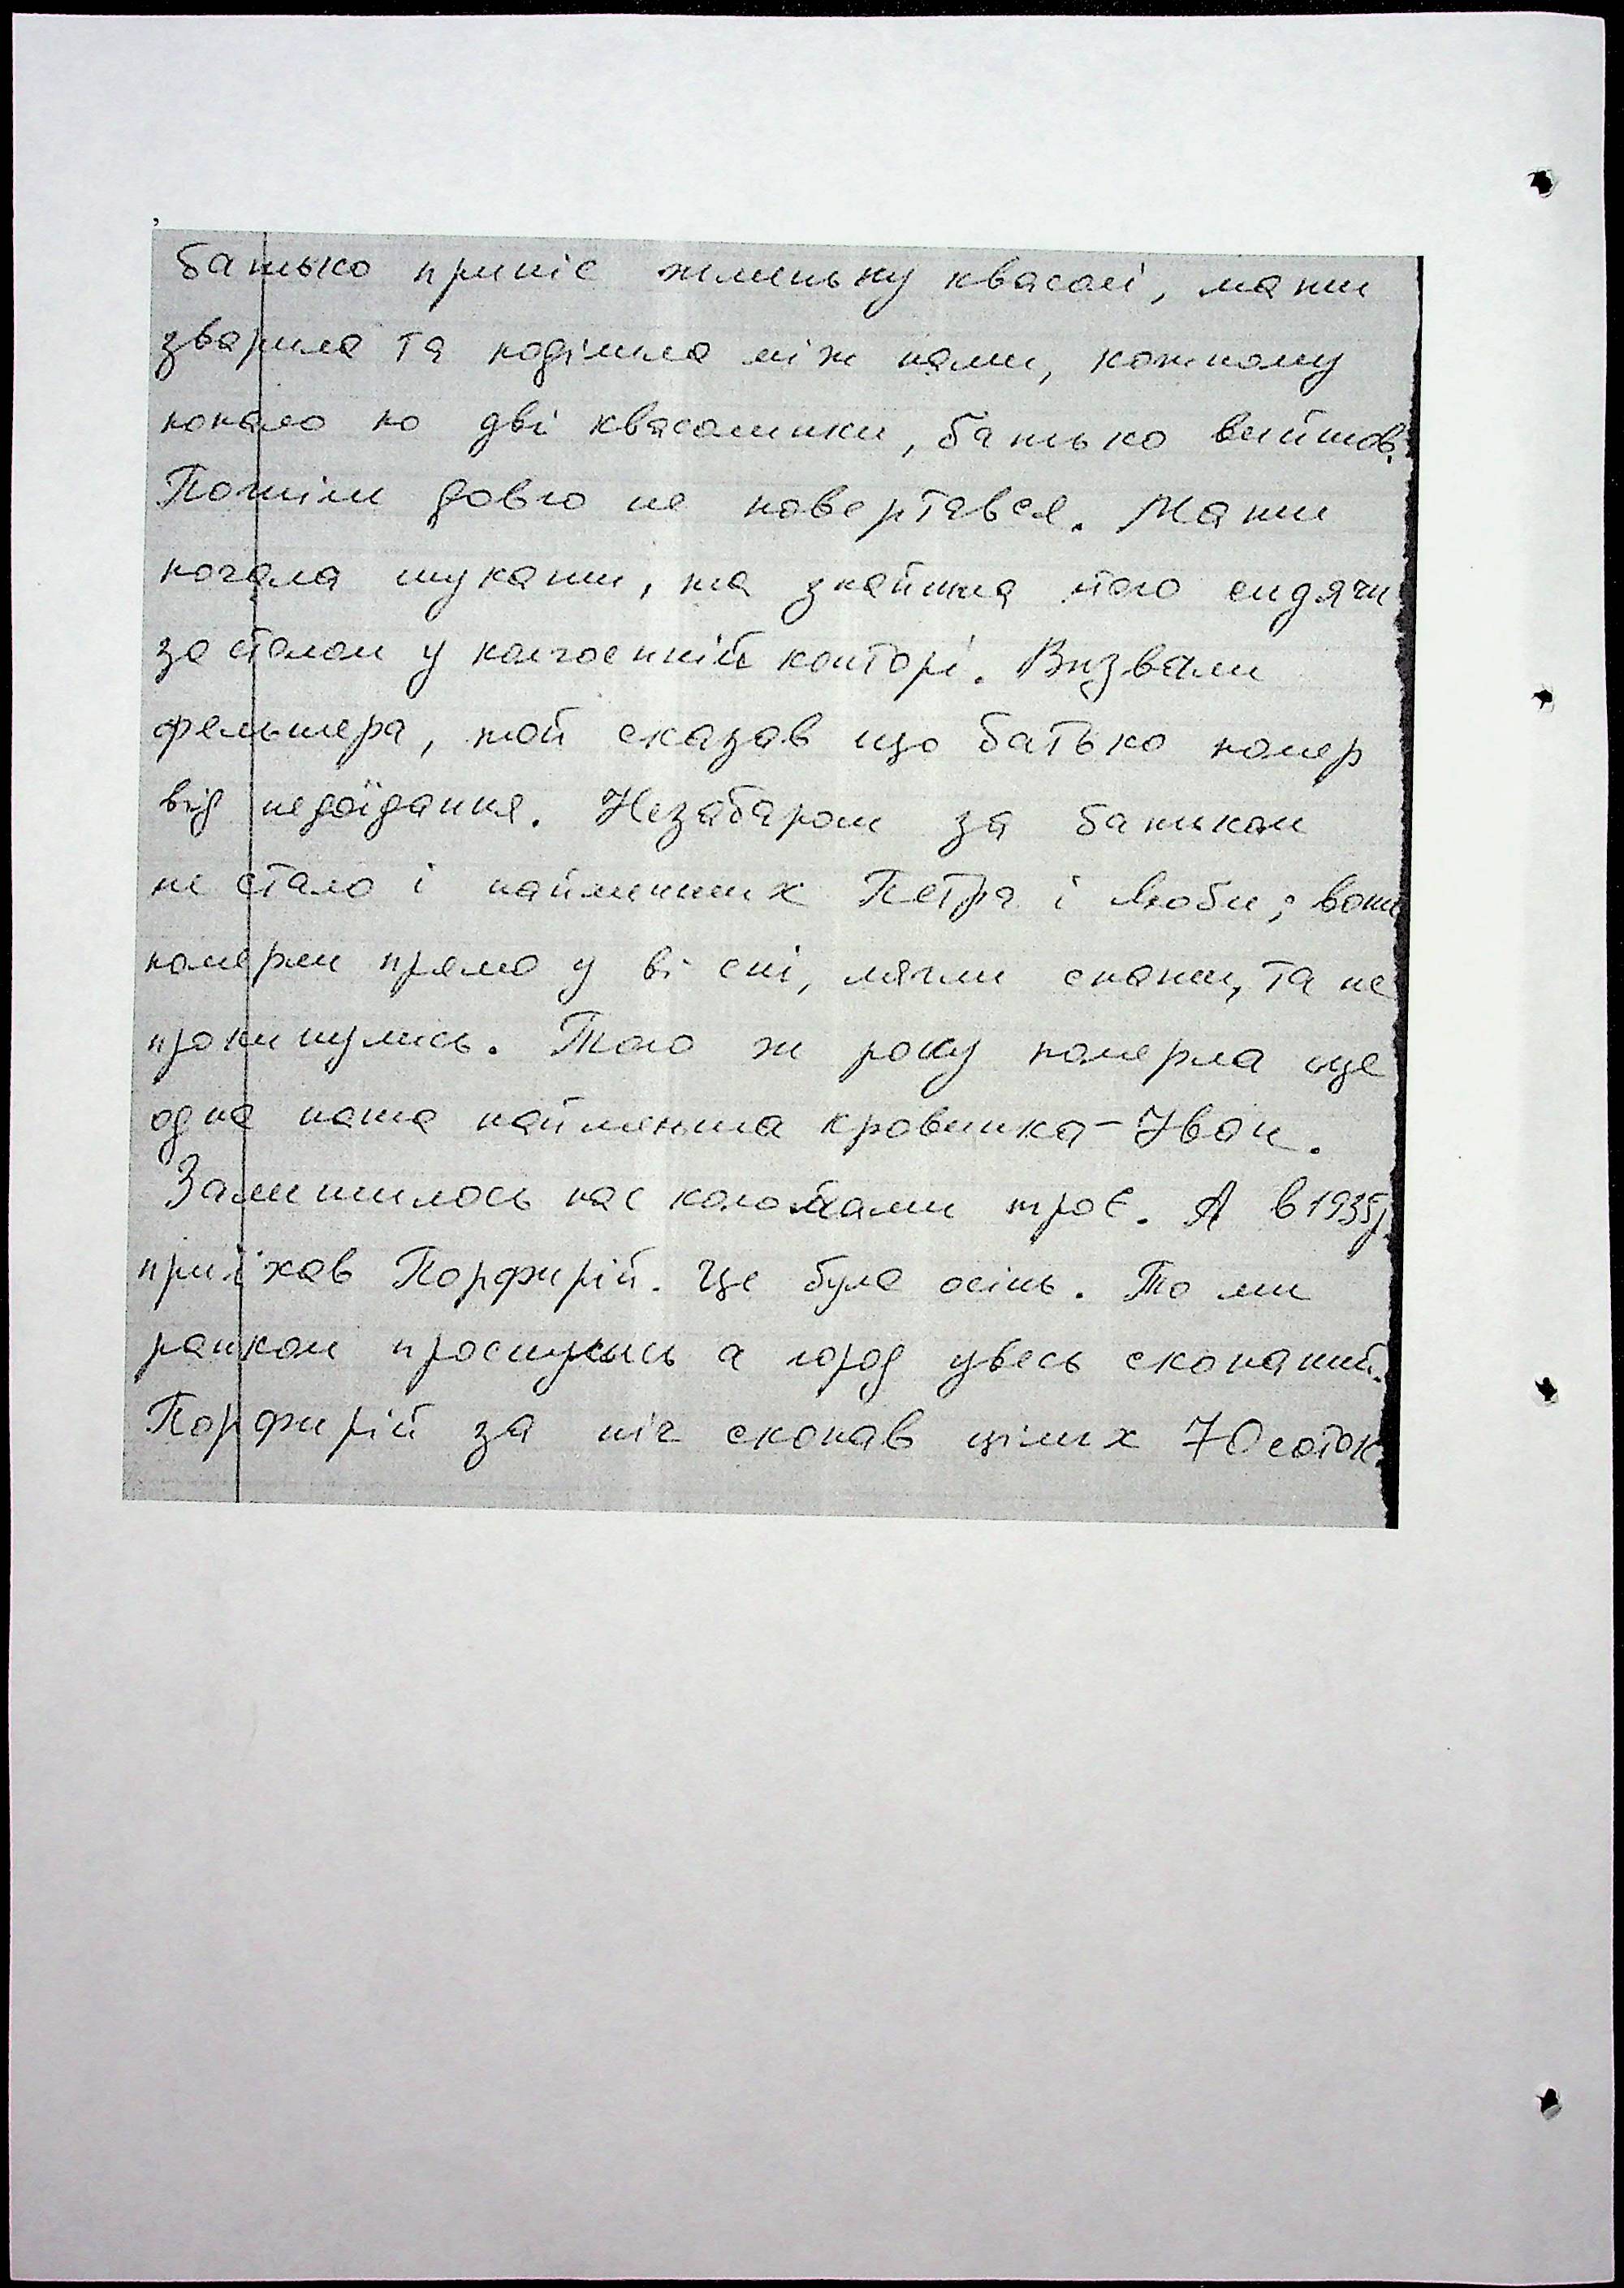 батько приніс жменьку квасолі, мати
зварила та поділила між нами, кожному
попало по дві квасолинки, батько вийшов.
Потім довго не повертався. Мати
почала шукати, та знайшла його сидячи
за столом у колгоспній конторі. Визвали
фельшера, той сказав що батько помер
від недоїдання. Незабаром за батьком
не стало і найменших Петра і Люби; вони
померли прямо у ві сні, лягли спати, та не
прокинулись. Того ж року померла ще
одна наша найменша кровинка - Іван.
Залишилось нас з мамою троє. А в 1935р.
приїхав Порфирій. Це була осінь. То ми
ранком проснулись а город увесь скопаний.
Порфирій за ніч скопав цілих 70 соток.